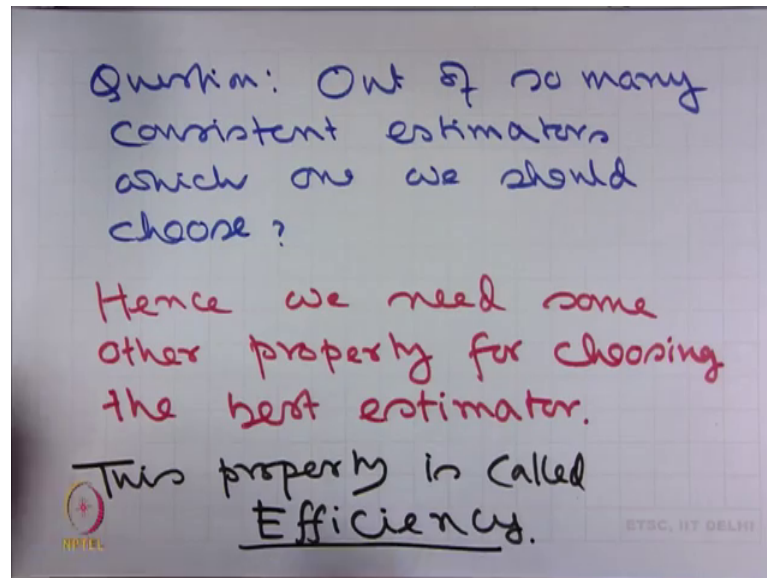 Question: Out of so many
consistent estimators
which one we should
choose?
Hence we need some
other property for choosing
the best estimator.
This property is called
Efficiency.
NPTEL
ETSC, IIT DELHI